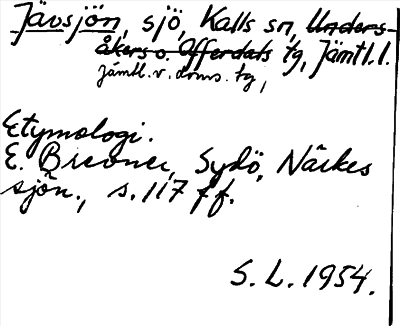 Jävsjön, sjö, Kalls sn, Unders-
åkers o. Offerdals tg, Jämtl. l.
jämtl. v. doms. tg,
Etymologi.
E. Brevner, Sydö. Närkes
sjön., s. 117 ff.
S. L. 1954.